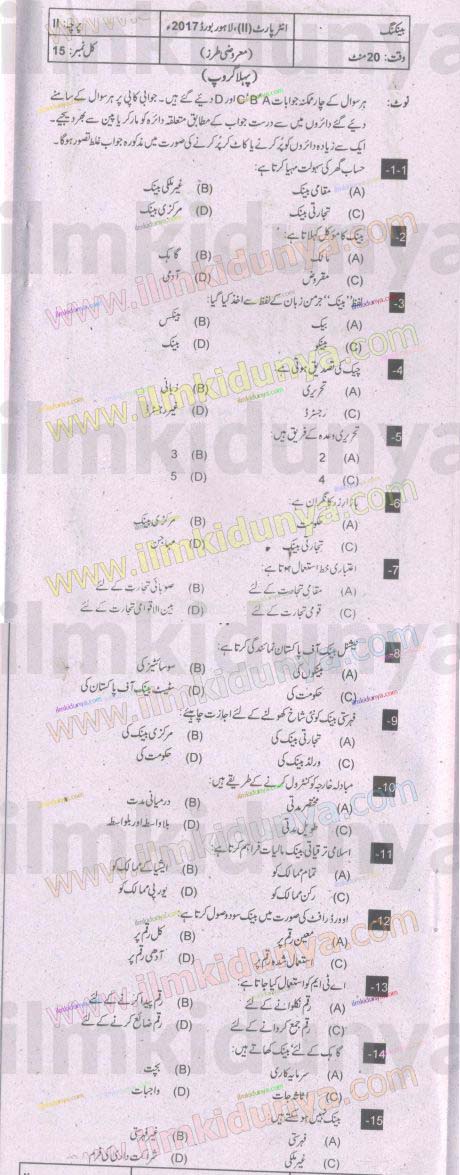 بینکنگ انٹر پارٹ (II)، لاہور بورڈ 2017ء پرچہ: II
وقت: 20 منٹ (معروضی طرز) کل نمبر: 15
(پہلا گروپ)
نوٹ: ہر سوال کے چار ممکنہ جوابات A'B'C اور D دیئے گئے ہیں۔ جوابی کاپی پر ہر سوال کے سامنے
دیئے گئے دائروں میں سے درست جواب کے مطابق متعلقہ دائرہ کو مارکر یا پین سے بھر دیجیے۔
ایک سے زیادہ دائروں کو پُر کرنے یا کاٹ کر پُر کرنے کی صورت میں مذکورہ جواب غلط تصور ہوگا۔
1-1- حساب گھر کی سہولت مہیا کرتا ہے:
(A) مقامی بینک (B) غیر ملکی بینک
(C) تجارتی بینک (D) مرکزی بینک
2- بینک کا مؤکل کہلاتا ہے:
(A) مالک (B) گاہک
(C) مقروض (D) آدمی
3- لفظ "بینک" جرمن زبان کے لفظ سے اخذ کیا گیا:
(A) بیک (B) بینکس
(C) بینکو (D) بینک
4- چیک کی تصدیق ہوتی ہے:
(A) تحریری (B) زبانی
(C) رجسٹرڈ (D) غیر رجسٹرڈ
5- تحریری وعدہ کے فریق ہیں:
(A) 2 (B) 3
(C) 4 (D) 5
6- بازار زر کا نگران ہے:
(A) حکومت (B) مرکزی بینک
(C) تجارتی بینک (D) مہاجن
7- اعتباری خط استعمال ہوتا ہے:
(A) مقامی تجارت کے لئے (B) صوبائی تجارت کے لئے
(C) قومی تجارت کے لئے (D) بین الاقوامی تجارت کے لئے
8- نیشنل بینک آف پاکستان نمائندگی کرتا ہے:
(A) بینکوں کی (B) سوسائٹیز کی
(C) حکومت کی (D) سٹیٹ بینک آف پاکستان کی
9- فہرستی بینک کو نئی شاخ کھولنے کے لئے اجازت چاہیئے:
(A) تجارتی بینک کی (B) مرکزی بینک کی
(C) ورلڈ بینک کی (D) حکومت کی
10- مبادلہ خارجہ کو کنٹرول کرنے کے طریقے ہیں:
(A) مختصر مدتی (B) درمیانی مدت
(C) طویل مدتی (D) بلاواسطہ اور بلواسطہ
11- اسلامی ترقیاتی بینک مالیات فراہم کرتا ہے:
(A) تمام ممالک کو (B) ایشیا کے ممالک کو
(C) رکن ممالک کو (D) یورپی ممالک کو
12- اوورڈرافٹ کی صورت میں بینک سود وصول کرتا ہے:
(A) معین رقم پر (B) کل رقم پر
(C) استعمال شدہ رقم پر (D) آدھی رقم پر
13- اے ٹی ایم کو استعمال کیا جاتا ہے:
(A) رقم نکلوانے کے لئے (B) رقم پیدا کرنے کے لئے
(C) رقم جمع کروانے کے لئے (D) رقم ضائع کرنے کے لئے
14- گاہک کے لئے بینک کھاتے ہیں:
(A) سرمایہ کاری (B) بچت
(C) اثاثہ جات (D) واجبات
15- بینک نہیں ہو سکتے ہیں:
(A) فہرستی (B) غیر فہرستی
(C) غیر ملکی (D) شراکت داری کی فرم
ilmkidunya
www.ilmkidunya.com